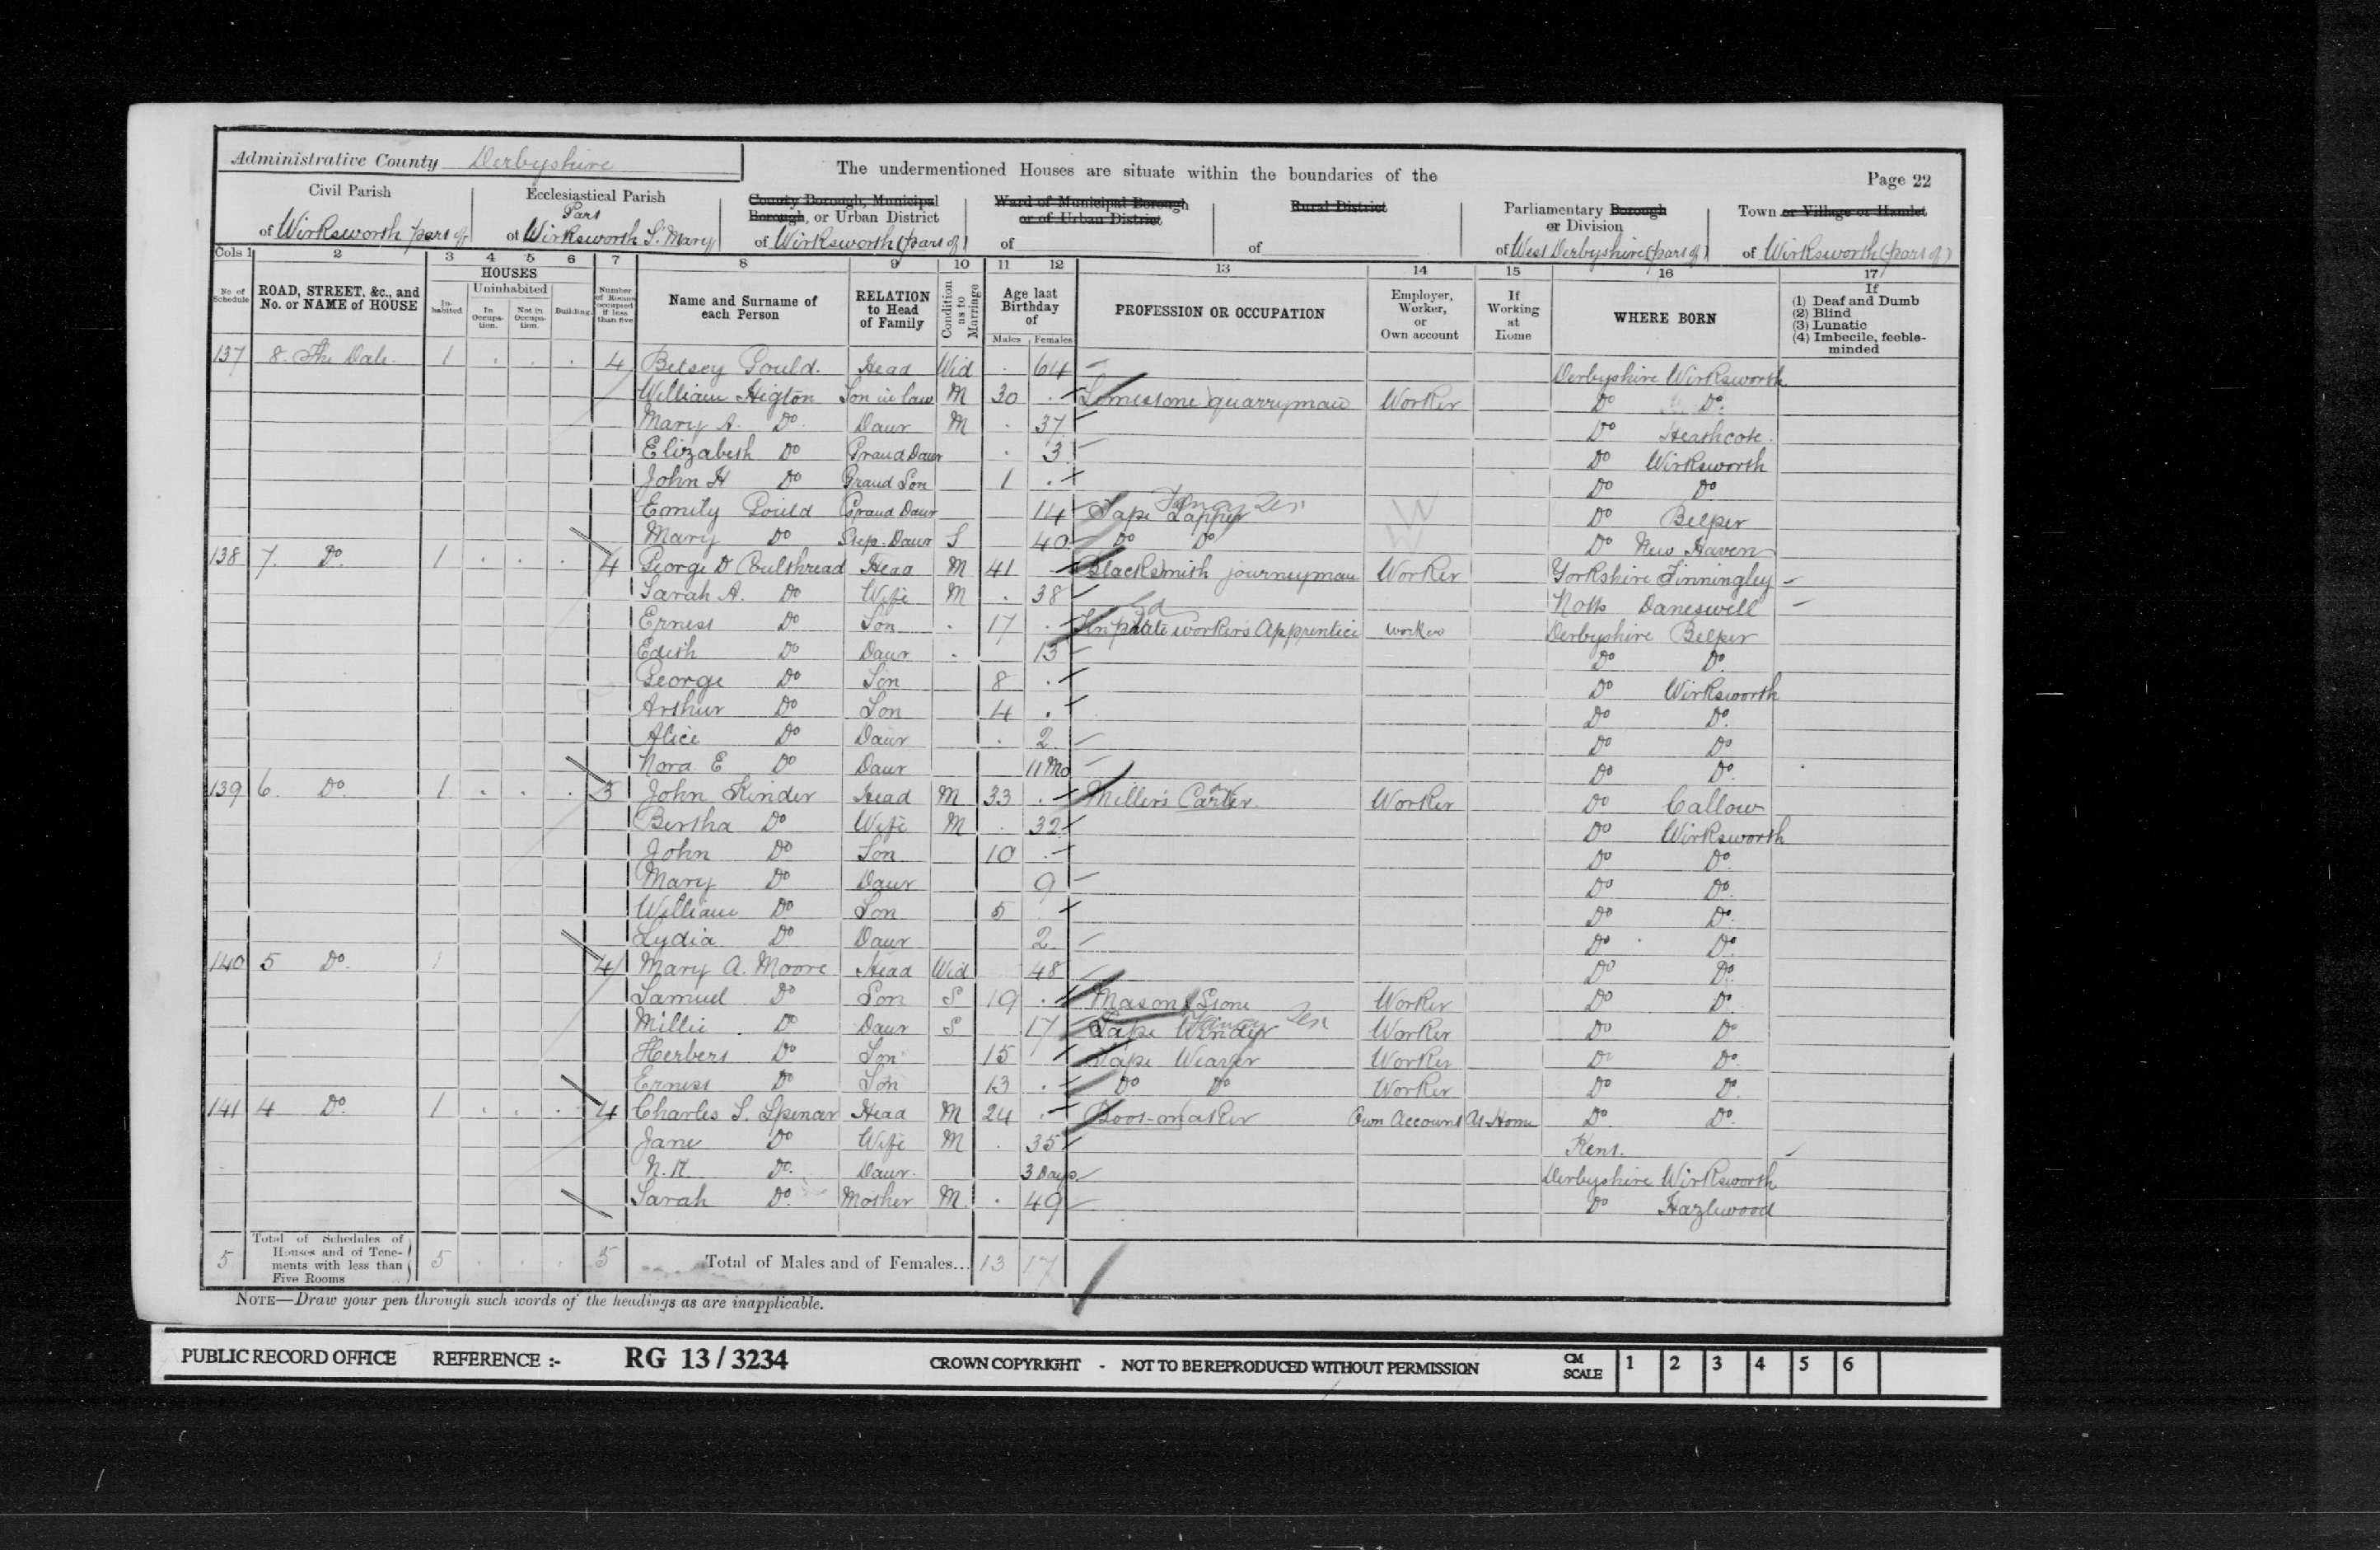 Administrative County Derbyshire
The undermentioned Houses are situate within the boundaries of the
Page 22
Civil Parish
of Wirksworth part of
Ecclesiastical Parish
Part
of Wirksworth St. Mary
County Borough, Municipal
Borough, or Urban District
of Wirksworth (part of)
Ward of Municipal Borough
or of Urban District
of
Rural District
of
Parliamentary Borough
or Division
of West Derbyshire (part of)
Town or Village or Hamlet
of Wirksworth (part of)
Cols 1 2 3 4 5 6 7 8 9 10 11 12 13 14 15 16 17
No. of Schedule
ROAD, STREET, &c., and No. or NAME of HOUSE
HOUSES
In-habited
Uninhabited
In Occupa-tion.
Not in Occupa-tion.
Building.
Number of Rooms occupied if less than five
Name and Surname of each Person
RELATION to Head of Family
Condition as to Marriage
Age last Birthday of
Males Females
PROFESSION OR OCCUPATION
Employer, Worker, or Own account
If Working at Home
WHERE BORN
If
(1) Deaf and Dumb
(2) Blind
(3) Lunatic
(4) Imbecile, feeble-minded
137 8. The Dale. 1 4 Betsey Gould. Head Wid 64 Derbyshire Wirksworth
William Higton Son in law M 30 Limestone quarryman Worker Do Do.
Mary A. Do. Daur M 37 Do Heathcote.
Elizabeth Do Grand Daur 3 Do Wirksworth
John H Do Grand Son 1 Do Do
Emily Gould Grand Daur 14 Tape Lapper Do Belper
Mary Do Step-Daur S 40 Do Do Do New Haven
138 7. Do. 1 4 George D Coulthread Head M 41 Blacksmith journeyman Worker Yorkshire Finningley
Sarah A. Do Wife M 38 Notts Daneswell
Ernest Do Son 17 Tin plate workers Apprentice Worker Derbyshire Belper
Edith Do Daur 13 Do Do.
George Do Son 8 Do Wirksworth
Arthur Do Son 4 Do Do.
Alice Do Daur 2 Do Do
Nora E Do Daur 11 Mo Do Do.
139 6. Do. 1 3 John Kinder Head M 33 Miller's Carter Worker Do Callow
Bertha Do Wife M 32 Do Wirksworth
John Do Son 10 Do Do.
Mary Do Daur 9 Do Do.
William Do Son 5 Do Do.
Lydia Do Daur 2 Do Do.
140 5 Do. 1 4 Mary A. Moore Head Wid 48 Do Do.
Samuel Do Son S 19 Mason Stone Worker Do Do.
Millie Do Daur S 17 Tape Winder Worker Do Do
Herbert Do Son 15 Tape Weaver Worker Do Do.
Ernest Do Son 13 Do Do Worker Do Do.
141 4 Do. 1 4 Charles S. Spencer Head M 24 Boot-maker Own Account At Home Do. Do.
Jane Do Wife M 35 Kent.
N.K. Do. Daur. 3 Days Derbyshire Wirksworth
Sarah Do. Mother M. 49 Do Hazlewood
5 Total of Schedules of Houses and of Tene-ments with less than Five Rooms 5 5 Total of Males and of Females... 13 17
NOTE—Draw your pen through such words of the headings as are inapplicable.
PUBLIC RECORD OFFICE REFERENCE :- RG 13 / 3234 CROWN COPYRIGHT - NOT TO BE REPRODUCED WITHOUT PERMISSION CM SCALE 1 2 3 4 5 6